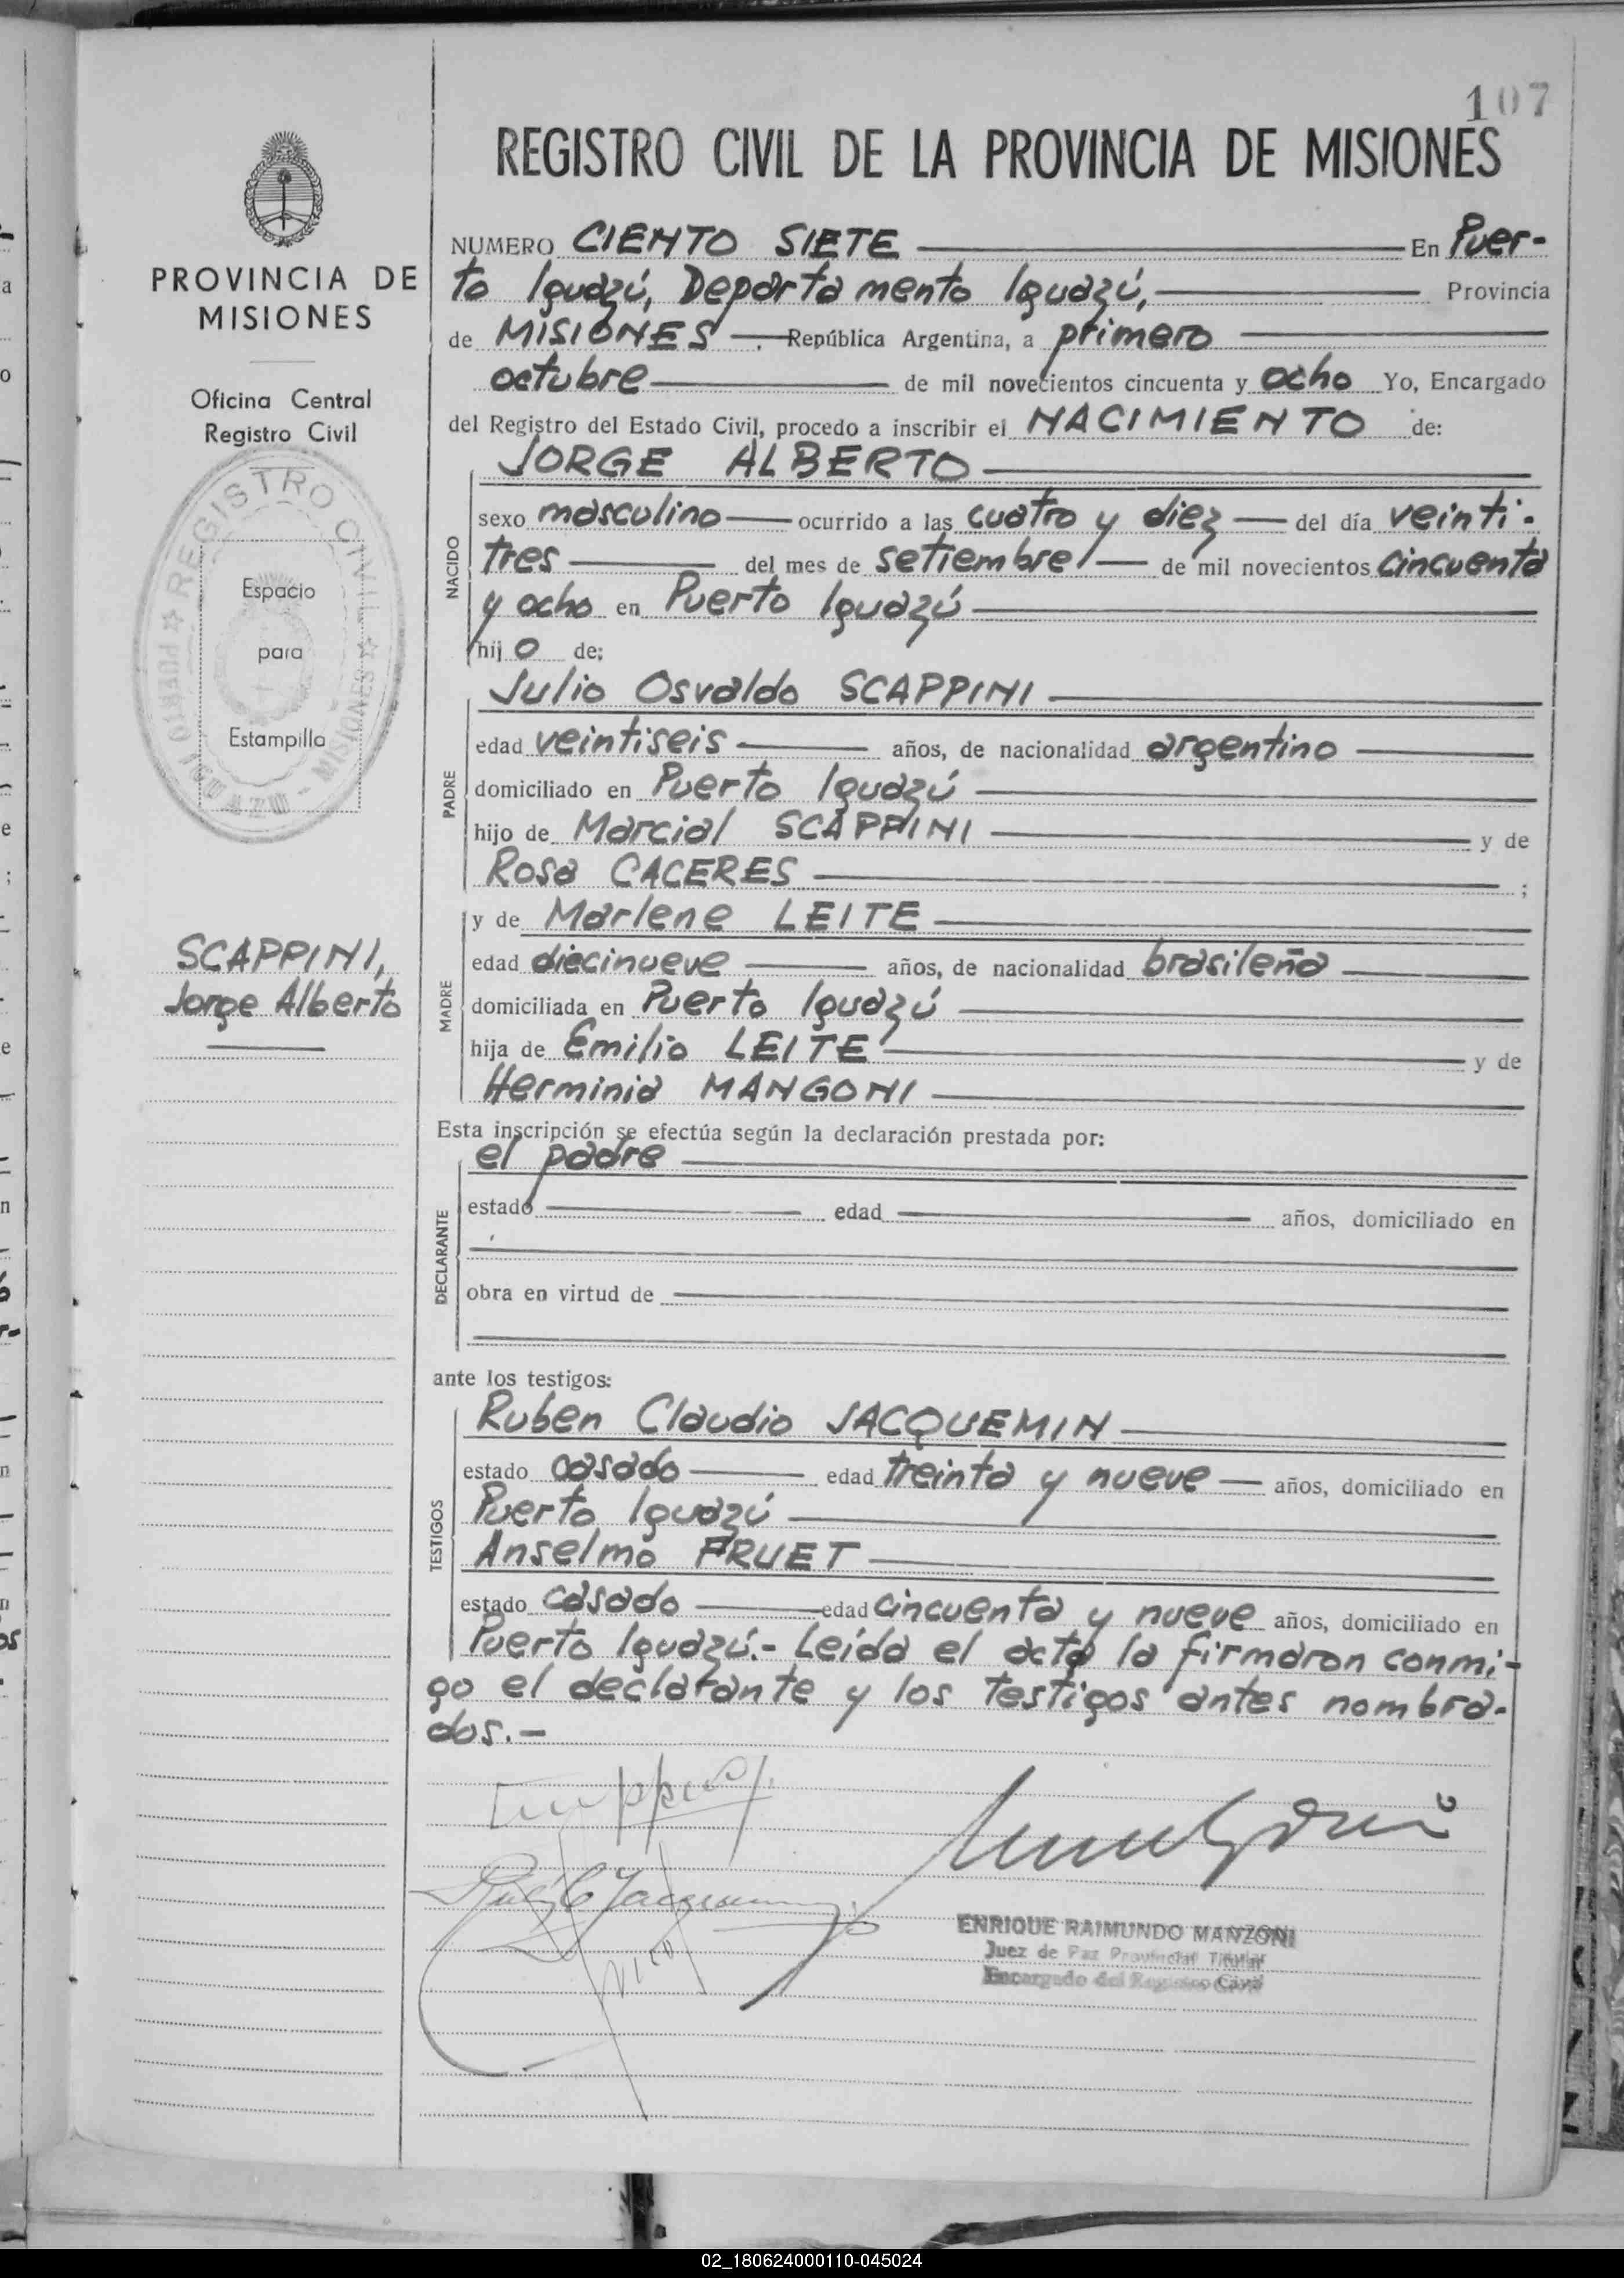 107
REGISTRO CIVIL DE LA PROVINCIA DE MISIONES
PROVINCIA DE
MISIONES
Oficina Central
Registro Civil
REGISTRO CIVIL
PUERTO IGUAZU - MISIONES
Espacio
para
Estampilla
SCAPPINI,
Jorge Alberto
NUMERO CIENTO SIETE En Puer-
to Iguazú, Departamento Iguazú, Provincia
de MISIONES, República Argentina, a primero
octubre de mil novecientos cincuenta y ocho Yo, Encargado
del Registro del Estado Civil, procedo a inscribir el NACIMIENTO de:
JORGE ALBERTO
NACIDO
sexo masculino ocurrido a las cuatro y diez del día veinti-
tres del mes de setiembre de mil novecientos cincuenta
y ocho en Puerto Iguazú
hijo de:
Julio Osvaldo SCAPPINI
PADRE
edad veintiseis años, de nacionalidad argentino
domiciliado en Puerto Iguazú
hijo de Marcial SCAPPINI y de
Rosa CACERES ;
y de Marlene LEITE
MADRE
edad diecinueve años, de nacionalidad brasileña
domiciliada en Puerto Iguazú
hija de Emilio LEITE y de
Herminia MANGONI
Esta inscripción se efectúa según la declaración prestada por:
el padre
DECLARANTE
estado edad años, domiciliado en
obra en virtud de
ante los testigos:
Ruben Claudio JACQUEMIN
TESTIGOS
estado casado edad treinta y nueve años, domiciliado en
Puerto Iguazú
Anselmo FRUET
estado casado edad cincuenta y nueve años, domiciliado en
Puerto Iguazú.- Leída el acta la firmaron conmi-
go el declarante y los testigos antes nombra-
dos.-
ENRIQUE RAIMUNDO MANZONI
Juez de Paz Provincial Titular
Encargado del Registro Civil
02_180624000110-045024